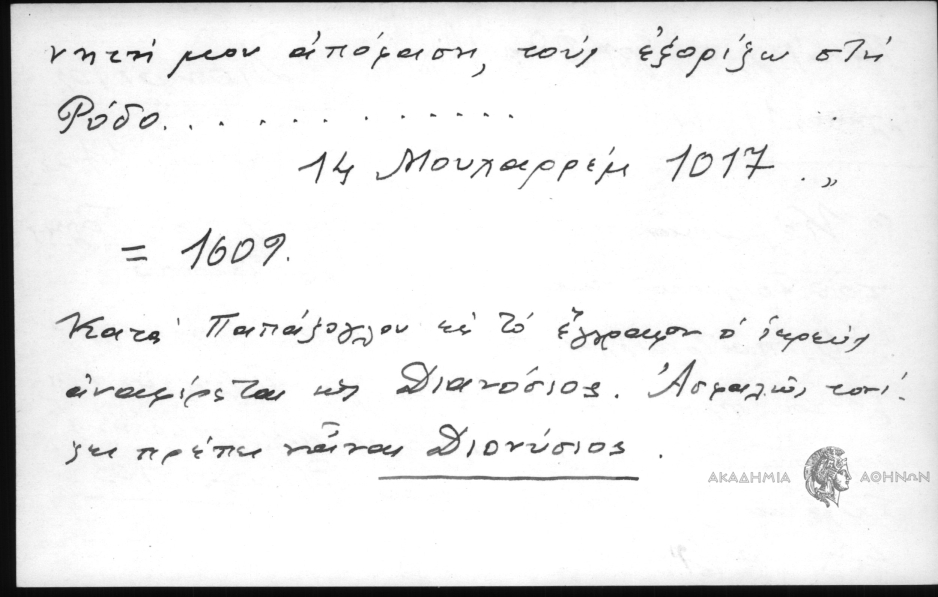 νητή μου ἀπόφαση, τούς ἐξορίζω στή
Ρόδο. . . . . . . . . . . . .
14 Μουχαρρέμ 1017 . „
= 1609.
Κατά Παπάζογλου εἰς τό ἔγγραφον ὁ ἱερεύς
ἀναφέρεται ὡς Διανόσιος. Ἀσφαλῶς τονί-
ζει πρέπει νἆναι Διονύσιος .
ΑΚΑΔΗΜΙΑ ΑΘΗΝΩΝ